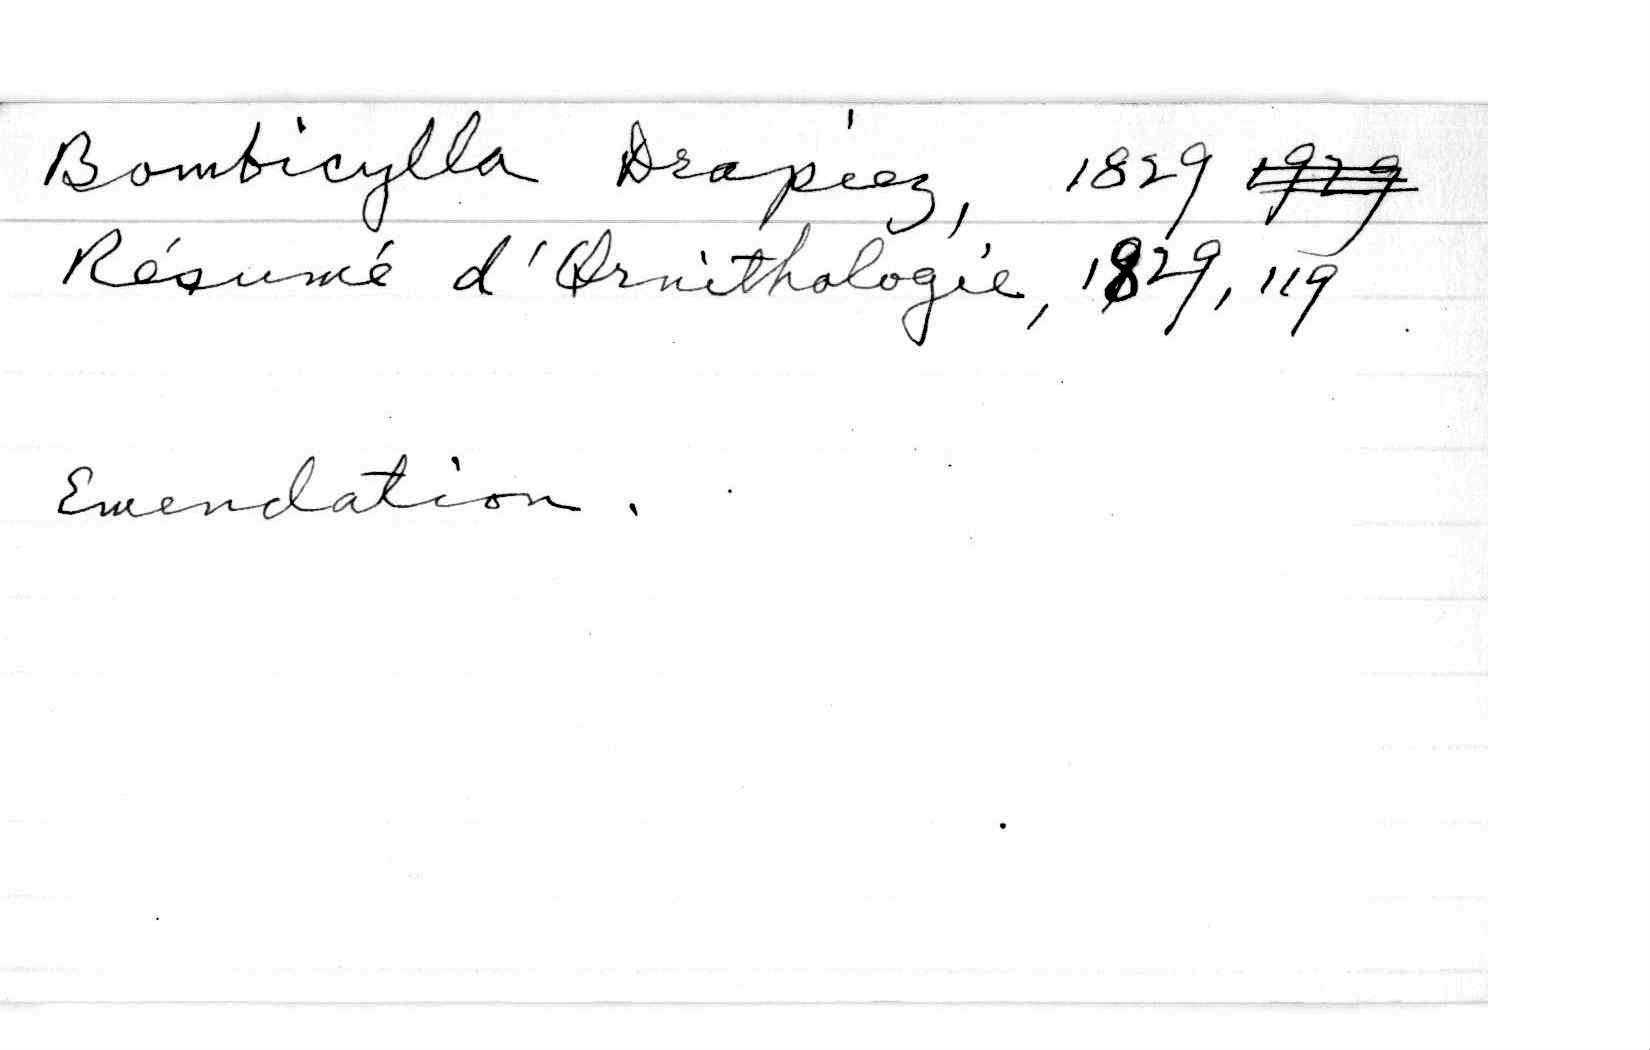 Bombicylla Drapiez, 1829 1929
Résumé d'Ornithologie, 1829, 119
Emendation.